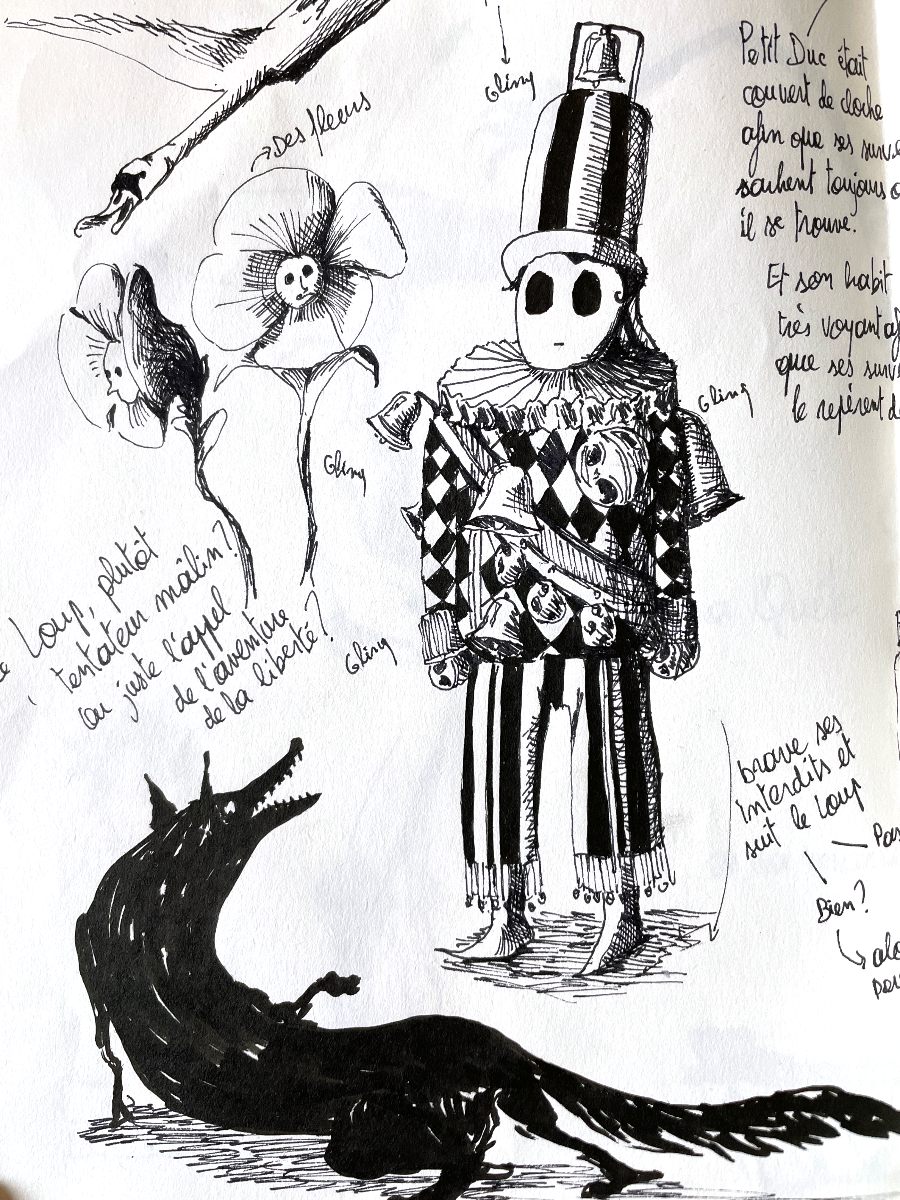 Gling
Des fleurs
Petit Duc était
couvert de cloche
afin que ses
sachent toujours
il se trouve.
Et son habit
très voyant
que ses
le repèrent
Gling
Gling
Loup, plutôt
tentateur mâlin?
ou juste l'appel
de l'aventure
de la liberté?
Gling
brave ses
interdits et
suit le Loup
Bien?